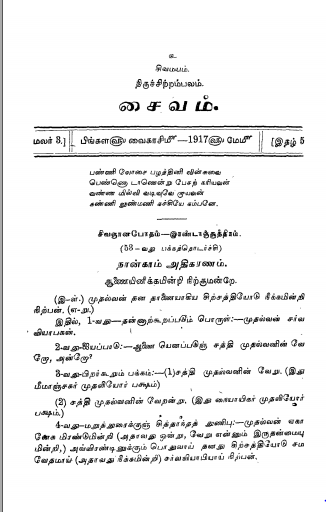 உ
சிவமயம்.
திருச்சிற்றம்பலம்.
சைவம்.
மலர் 3.] பிங்கள௵ வைகாசி௴—1917௵ மே௴ [இதழ் 5
பண்ணி லோசை பழத்தினி லின்சுவை
பெண்ணொ டாணென்று பேசற் கரியவன்
வண்ண மில்லி வடிவுவே றாயவன்
கண்ணி லுண்மணி கச்சியே கம்பனே.
சிவஞானபோதம்—இரண்டாஞ்சூத்திரம்.
(58-வது பக்கத்தொடர்ச்சி)
நான்காம் அதிகரணம்.
ஆணையினீக்கமின்றி நிற்குமன்றே.
(இ-ள்.) முதல்வன் தன தாணையாகிய சிற்சத்தியோடு நீக்கமின்றி
நிற்பன். (எ-று.)
இதில், 1-வது—தன்னாற்கூறப்படும் பொருள்:—முதல்வன் சர்வ
வியாபகன்.
2-வது—ஐயப்பாடு:—ஆணை யெனப்படுஞ் சத்தி முதல்வனின் வே
றோ, அன்றோ?
3-வது—பிறர்கூறும் பக்கம்:—(1)சத்தி முதல்வனின் வேறு. (இது
மீமாஞ்சகர் முதலியோர் பக்ஷம்)
(2) சத்தி முதல்வனின் வேறன்று. (இது நையாயிகர் முதலியோர்
பக்ஷம்.)
4-வது—மறுத்துரைக்குஞ் சித்தாந்தத் துணிபு:—முதல்வன் ஏகா
னேக மிரண்டுமின்றி (அதாவது ஒன்று, வேறு என்னும் இருதன்மையு
மின்றி,) அவ்விரண்டினுக்கும் பொதுவாய் தனது சிற்சத்தியோடு சம
வேதமாய் (அதாவது நீக்கமின்றி) சர்வவியாபியாய் நிற்பன்.